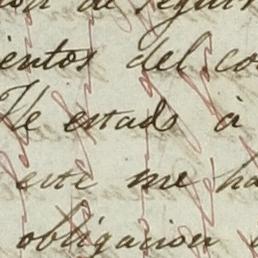 de segui
ientos del co
He estado à
este me ha
obligacion